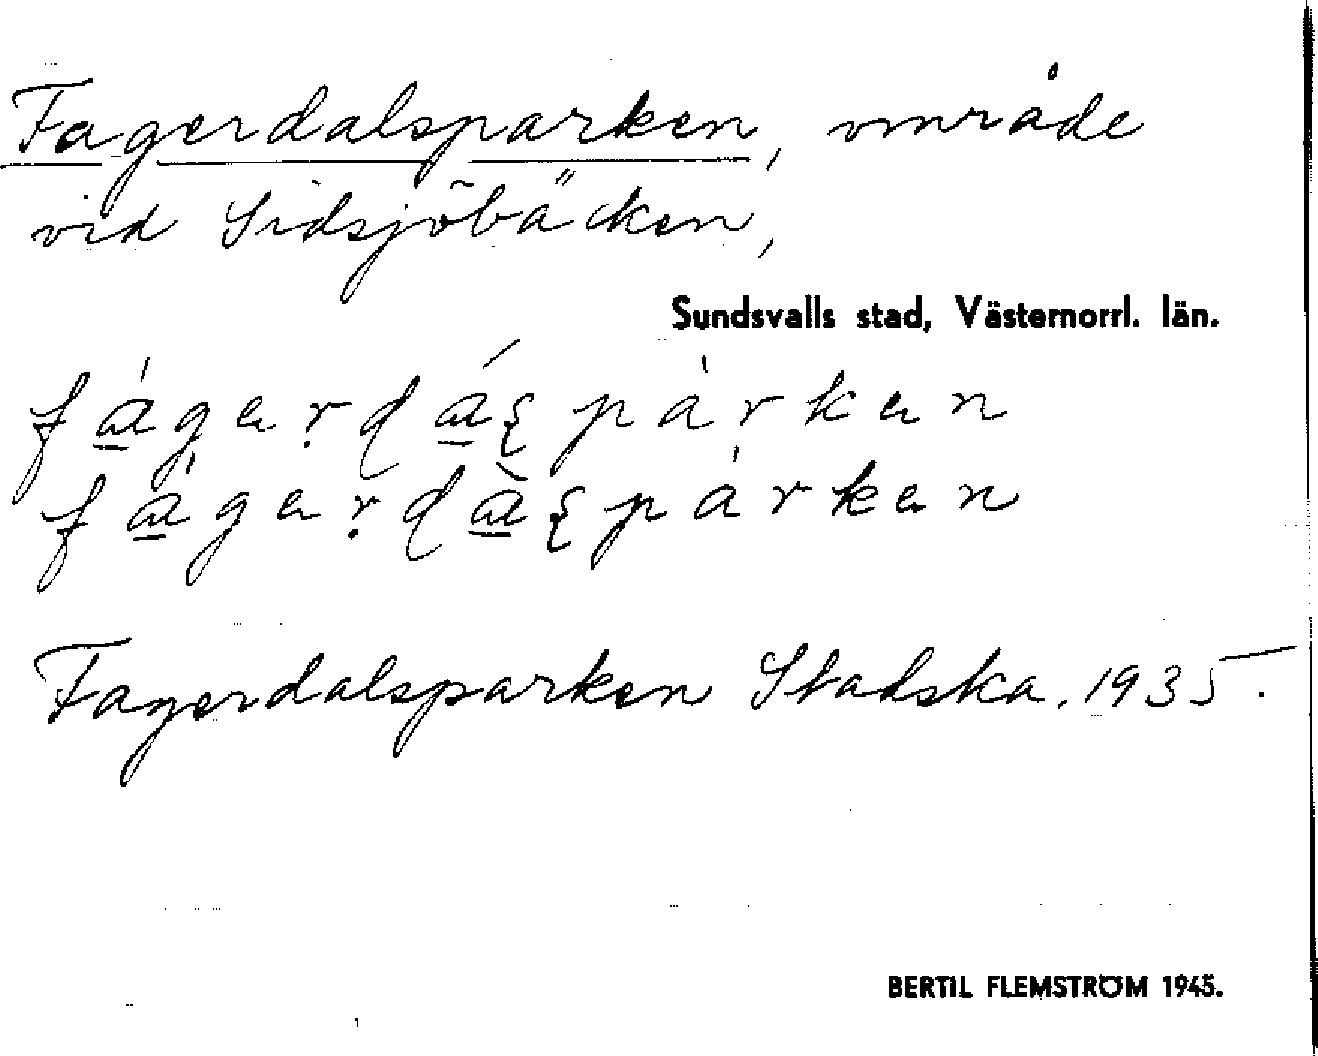 Fagerdalsparken, område
vid Sidsjöbäcken,
Sundsvalls stad, Västernorrl. län.
Fagerdalsparken Stadska. 1935.
BERTIL FLEMSTRÖM 1945.